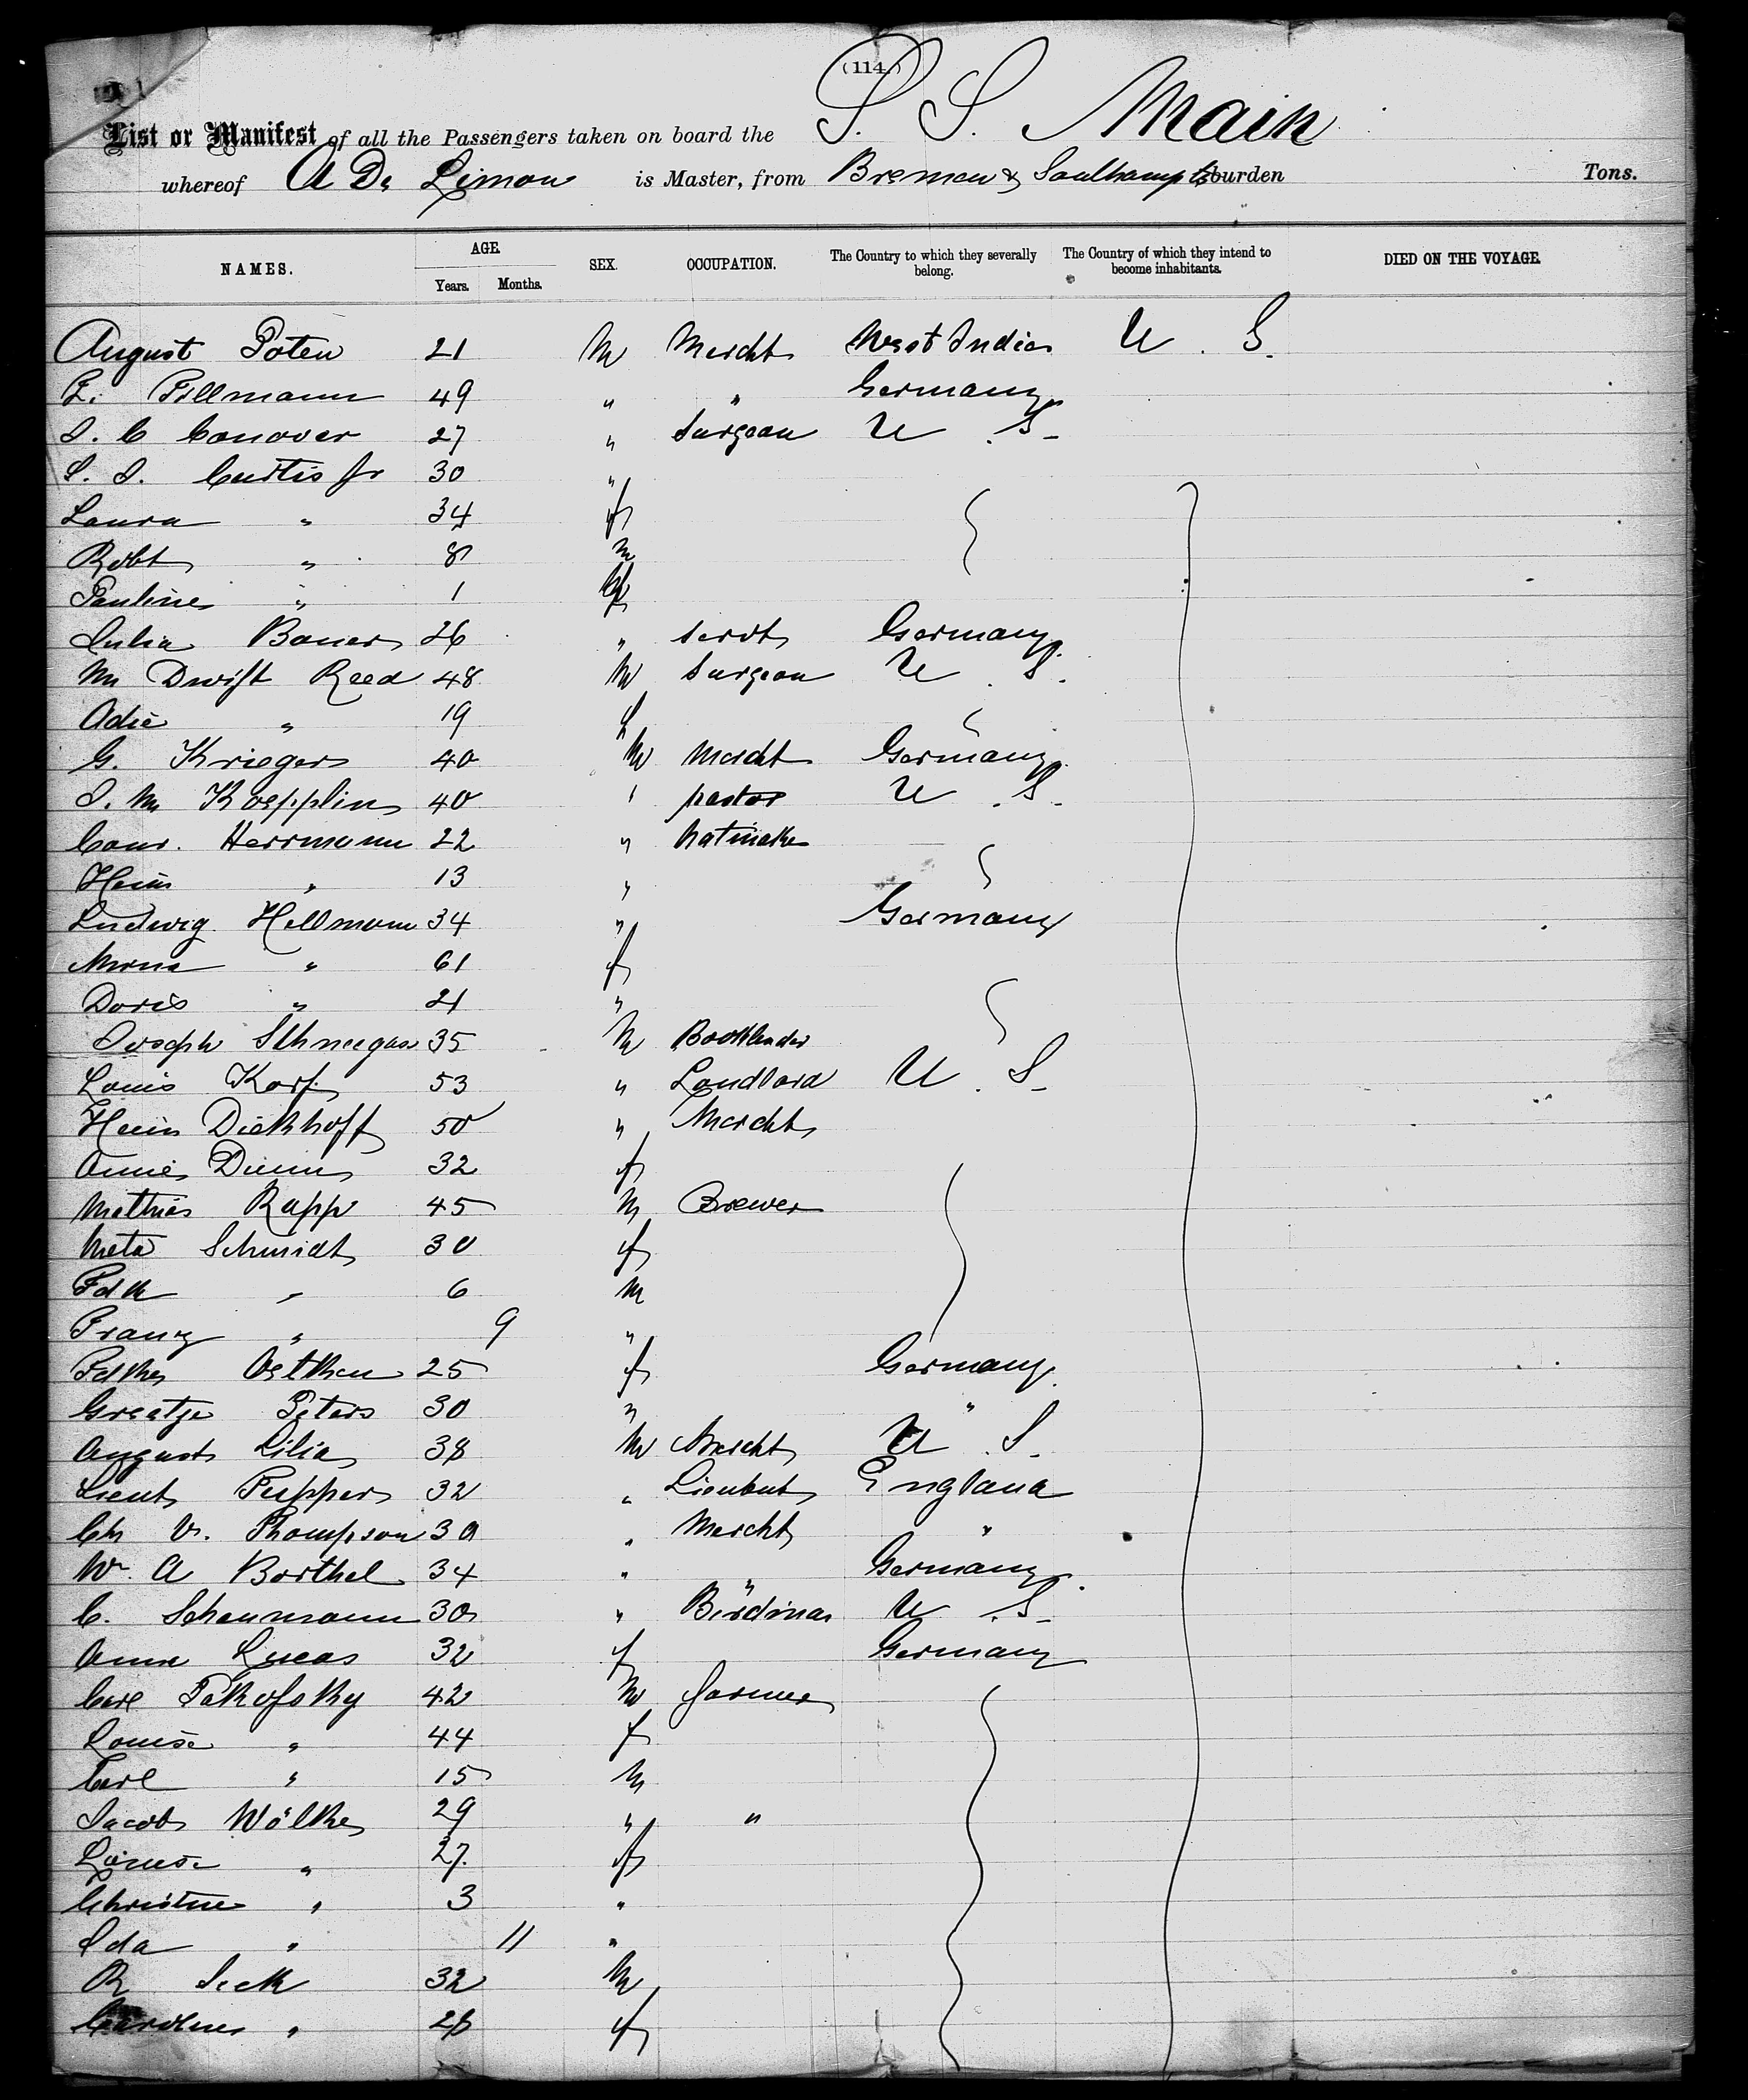 (114.)
List or Manifest of all the Passengers taken on board the S. S. Main
whereof A De Limon is Master, from Bremen & Southampt burden Tons.
NAMES. AGE. Years. Months. SEX. OCCUPATION. The Country to which they severally belong. The Country of which they intend to become inhabitants. DIED ON THE VOYAGE.
August Poten 21 M Mercht West Indies U. S.
Fillmann 49 " " Germany
C Conover 27 " Surgeon U. S.
Curtis Jr 30 "
Laura " 34 f
Robt " 8 m
Pauline " 1 f
Julia Bauer 26 " Servt Germany
Dwight Reed 48 M Surgeon U. S.
Adie " 19 f
G. Krieger 40 M Mercht Germany
J. M Koepplin 40 " pastor U. S.
Conr. Herrmann 22 " Hatmaker
Heinr " 13 "
Ludwig Hellmann 34 " Germany
" 61 f
Doris " 21 "
Joseph Schneegass 35 M
Louis Korf 53 " Landlord U. S.
Heinr Dickhoff 50 " Mercht
Annie 32 f
Mathias Rapp 45 M Brewer
Meta Schmidt 30 f
Fdk " 6 M
Franz " 9 "
Fdke Oetken 25 f Germany
Greatje Peters 30 " "
August Lilia 38 M Mercht U. S.
Lieut Pepper 32 " Lieutnt England
Ch V. Thompson 30 " Mercht "
W. A Barthel 34 " " Germany
C. Schaumann 30 " U. S.
Anna Lucas 32 f Germany
Carl Pakofsky 42 M farmer
Louise " 44 f
Carl " 15 M
Jacob Wölke 29 " "
Louise " 27 f
Christine " 3 "
Ida " 11 "
R 32 M
Caroline " 28 f